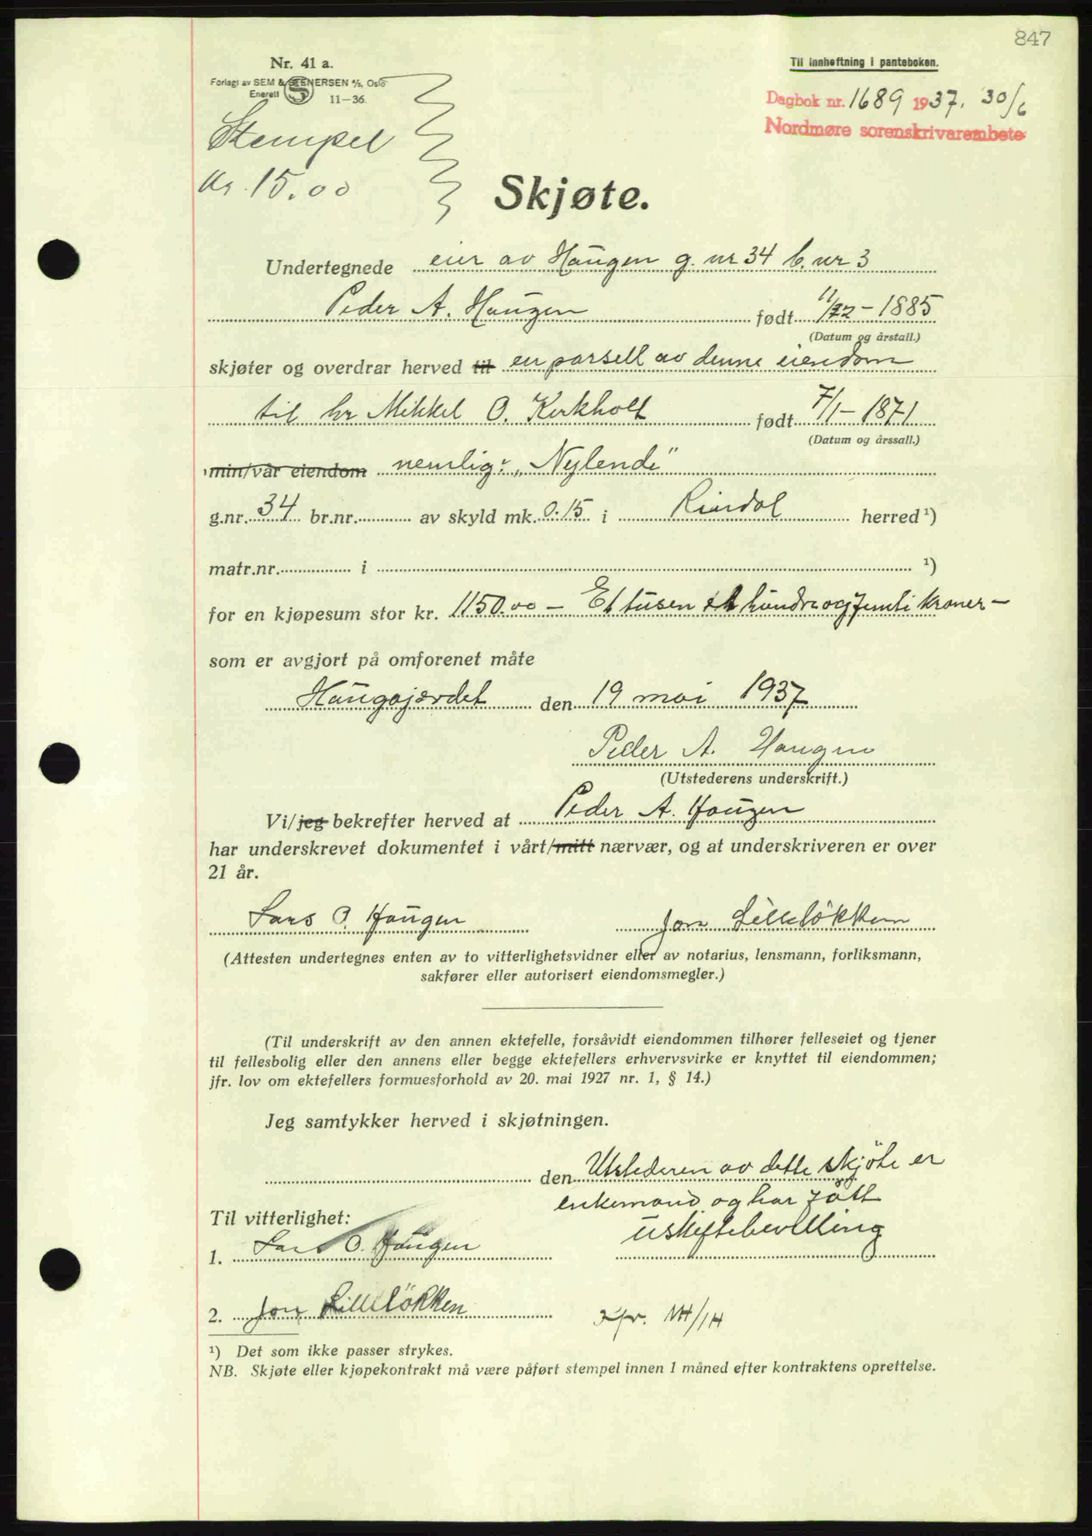 847
Nr. 41 a.
Forlagt av SEM & STENERSEN A/S, Oslo
Enerett 11-36.
Til innheftning i panteboken.
Dagbok nr. 1689 1937. 30/6
Nordmøre sorenskrivarembete
Stempel
kr. 15.00
Skjøte.
Undertegnede eier av Haugen g. nr 34 b. nr 3
Peder A. Haugen født 11/12 - 1885
(Datum og årstall.)
skjøter og overdrar herved til en parsell av denne eiendom
til hr Mikkel O. Kirkholt født 7/1 - 1871
(Datum og årssall.)
min/vår eiendom nemlig: "Nylende"
g.nr. 34 br.nr. av skyld mk. 0.15 i Rindal herred ¹)
matr.nr. i ¹)
for en kjøpesum stor kr. 1150.00 - Et tusen et hundre og femti kroner -
som er avgjort på omforenet måte
Haugajordet den 19 mai 1937
Peder A. Haugen
(Utstederens underskrift.)
Vi/jeg bekrefter herved at Peder A. Haugen
har underskrevet dokumentet i vårt/mitt nærvær, og at underskriveren er over
21 år.
Lars O. Haugen Jon Lilleløkken
(Attesten undertegnes enten av to vitterlighetsvidner eller av notarius, lensmann, forliksmann,
sakfører eller autorisert eiendomsmegler.)
(Til underskrift av den annen ektefelle, forsåvidt eiendommen tilhører felleseiet og tjener
til fellesbolig eller den annens eller begge ektefellers erhvervsvirke er knyttet til eiendommen;
jfr. lov om ektefellers formuesforhold av 20. mai 1927 nr. 1, § 14.)
Jeg samtykker herved i skjøtningen.
den Utstederen av dette skjöte er
enkemand og har fått
uskiftebevilling
Til vitterlighet:
1. Lars O. Haugen
2. Jon Lilleløkken
¹) Det som ikke passer strykes.
NB. Skjøte eller kjøpekontrakt må være påført stempel innen 1 måned efter kontraktens oprettelse.